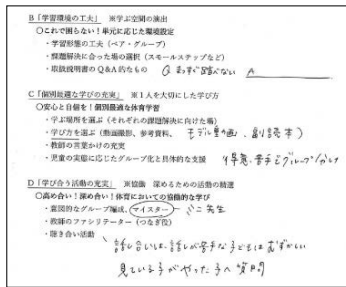 B「学習環境の工夫」 ※学ぶ空間の演出
○これで困らない！単元に応じた環境設定
・学習形態の工夫（ペア・グループ）
・課題解決に合った場の選択（スモールステップなど）
・取扱説明書のQ＆A的なもの Q まっすぐ跳べない A
C「個別最適な学びの充実」 ※1人を大切にした学び方
○安心と自信を！個別最適な体育学習
・学ぶ場所を選ぶ（それぞれの課題解決に向けた場）
・学び方を選ぶ（動画撮影、参考資料、 モデル動画、副読本）
・教師の言葉かけの充実
・児童の実態に応じたグループ化と具体的な支援 得意、苦手でグループ分け
D「学び合う活動の充実」 ※協働 深めるための活動の精選
○高め合い！深め合い！体育においての協働的な学び
・意図的なグループ編成、マイスター ミニ先生
・教師のファシリテーター（つなぎ役）
・聴き合い活動
話し合いは、話しが苦手な子どもはむずかしい
見ている子がやった子へ質問